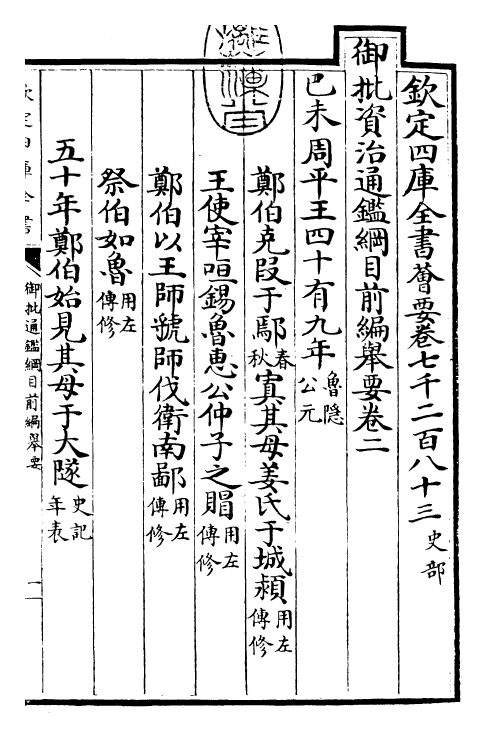 欽定四庫全書薈要卷七千二百八十三 史部
御批資治通鑑綱目前編舉要卷二
己未周平王四十有九年 魯隠公元
鄭伯克段于鄢 春秋 寘其母姜氏于城潁 用左傳修
王使宰咺錫魯恵公仲子之賵 用左傳修
鄭伯以王師虢師伐衛南鄙 用左傳修
祭伯如魯 用左傳修
五十年鄭伯始見其母于大隧 史記年表
欽定四庫全書
御批通鑑綱目前編舉要
一